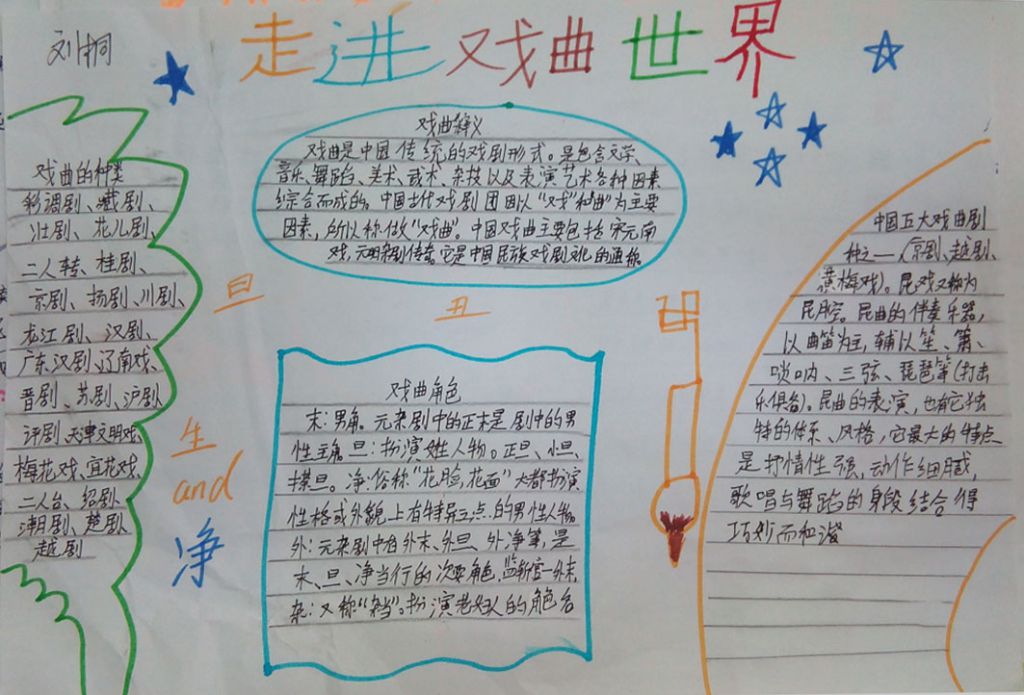 刘桐
走进戏曲世界
戏曲的种类
彩调剧、藏剧、
壮剧、花儿剧、
二人转、桂剧、
京剧、扬剧、川剧、
龙江剧、汉剧、
广东汉剧、辽南戏、
晋剧、苏剧、沪剧
评剧、天津文明戏、
梅花戏、宜花戏、
二人台、绍剧、
潮剧、楚剧、
越剧
戏曲释义
戏曲是中国传统的戏剧形式。是包含文学、
音乐、舞蹈、美术、武术、杂技以及表演艺术各种因素
综合而成的。中国古代戏剧团因以"戏"和曲"为主要
因素，所以称做"戏曲"。中国戏曲主要包括宋元南
戏，元明杂剧传奇。它是中国民族戏剧文化的通称
旦
丑
生
and
净
戏曲角色
末：男角。元杂剧中的正末是剧中的男
性主角旦：扮演女性人物。正旦、小旦、
搽旦。净：俗称"花脸，花面"大都扮演
性格或外貌上有特异之点的男性人物
外：元杂剧中有外末、外旦、外净等，是
末、旦、净当行的次要角色，
杂：又称扮演老妇人的角色名
中国五大戏曲剧
种之一（京剧、越剧、
黄梅戏）。昆戏又称为
昆腔。昆曲的伴奏乐器，
以曲笛为主，辅以笙、箫、
唢呐、三弦、琵琶等（打击
乐俱备）。昆曲的表演，也有它独
特的体系、风格，它最大的特点
是抒情性强，动作细腻，
歌唱与舞蹈的身段结合得
巧妙而和谐